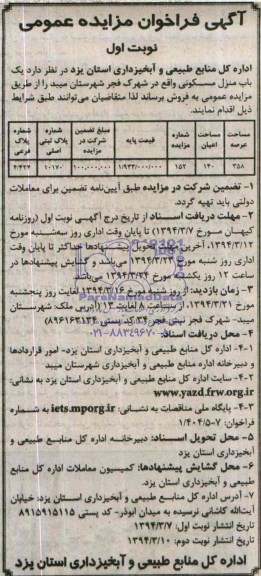 آگهی فراخوان مزایده عمومی
نوبت اول
اداره کل منابع طبیعی و آبخیزداری استان یزد در نظر دارد یک
باب منزل مسکونی واقع در شهرک فجر شهرستان میبد را از طریق
مزایده عمومی به فروش برساند لذا متقاضیان می‌توانند طبق شرایط
ذیل اقدام نمایند.
مساحت عرصه	مساحت اعیان	شماره مزایده	قیمت پایه	مبلغ تضمین شرکت در مزایده	شماره پلاک ثبتی اصلی	شماره پلاک فرعی
۳۵۸	۱۴۰	۱۵۲	۱/۹۳۳/۰۰۰/۰۰۰	۱۰۰,۰۰۰,۰۰۰	۱۰۱۷۰	۴/۴۲۴
۱- تضمین شرکت در مزایده طبق آیین‌نامه تضمین برای معاملات
دولتی باید تهیه گردد.
۲- مهلت دریافت اسناد از تاریخ درج آگهی نوبت اول (روزنامه
کیهان مورخ ۱۳۹۴/۳/۷) تا پایان وقت اداری روز سه‌شنبه مورخ
۱۳۹۴/۳/۱۲، آخرین حداکثر تا پایان وقت
اداری روز شنبه مورخ ۱۳۹۴/۳/۲۳ می‌باشد و گشایش پیشنهادها در
ساعت ۱۲ روز یکشنبه مورخ ۱۳۹۴/۳/۲۴ می‌باشد.
۳- زمان بازدید: از روز شنبه مورخ ۱۳۹۴/۳/۱۶ لغایت روز پنجشنبه
مورخ ۱۳۹۴/۳/۲۱، از ساعت ۸ لغایت ۱۳ (آدرس ملک: شهرستان
میبد- شهرک فجر نبش فجر کد پستی ۸۹۶۱۶۳۱۳۴)
ParsNamadData
۰۲۱-۸۸۳۴۹۶۷۰
۴- محل دریافت اسناد:
۴-۱- اداره کل منابع طبیعی و آبخیزداری استان یزد- امور قراردادها
و دبیرخانه اداره منابع طبیعی و آبخیزداری شهرستان میبد
۴-۲- سایت اداره کل منابع طبیعی و آبخیزداری استان یزد به نشانی:
www.yazd.frw.org.ir
۴-۳- پایگاه ملی مناقصات به نشانی: iets.mporg.ir به شماره
فراخوان: ۱/۴۰۴/۵۰۷
۵- محل تحویل اسناد: دبیرخانه اداره کل منابع طبیعی و
آبخیزداری استان یزد
۶- محل گشایش پیشنهادها: کمیسیون معاملات اداره کل منابع
طبیعی و آبخیزداری استان یزد.
۷- آدرس اداره کل منابع طبیعی و آبخیزداری استان یزد: خیابان
آیت‌الله کاشانی نرسیده به میدان ابوذر- کد پستی ۸۹۱۵۹۱۵۱۱۵
تاریخ انتشار نوبت اول: ۱۳۹۴/۳/۷
تاریخ انتشار نوبت دوم: ۱۳۹۴/۳/۱۰
اداره کل منابع طبیعی و آبخیزداری استان یزد